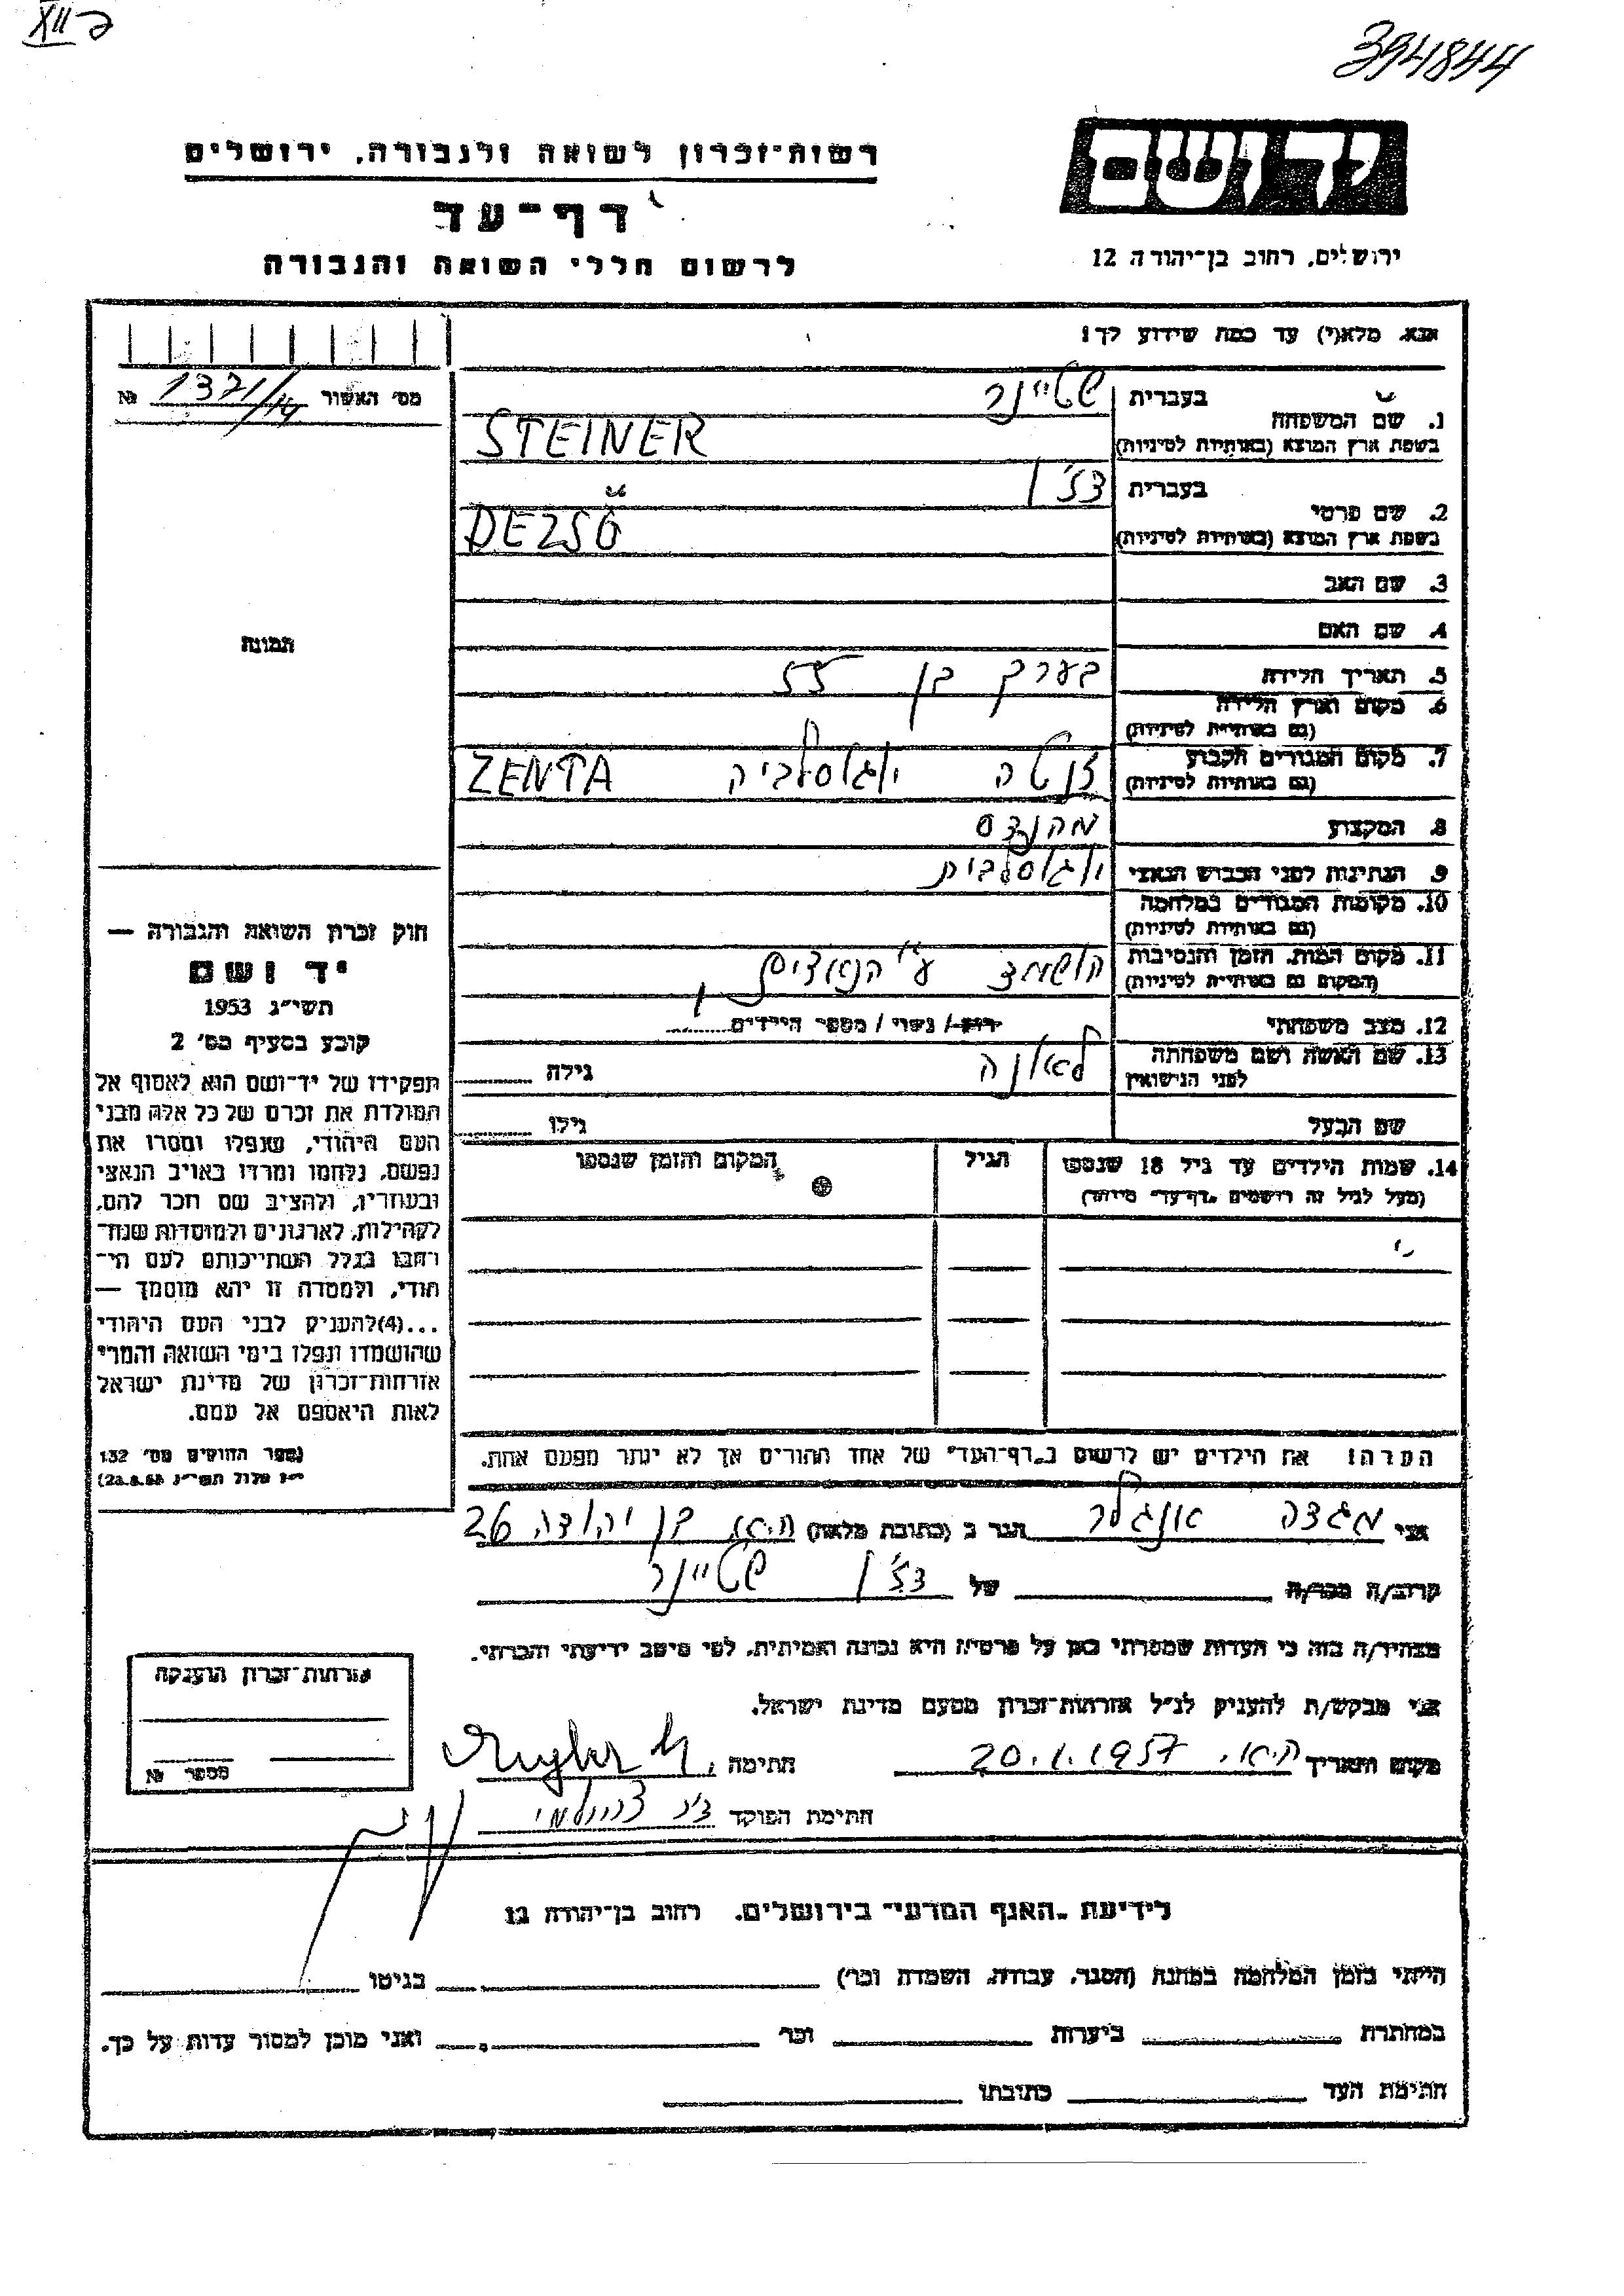 394844
XII ג
יד ושם
ירושלים, רחוב בן־יהודה 12
רשות־זכרון לשואה ולגבורה, ירושלים
דף־עד
לרשום חללי השואה והגבורה
אנא, מלא(י) עד כמה שידוע לך!
מס׳ האשור 1371/14 №
1. שם המשפחה
בעברית שטיינר
בשפת ארץ המוצא (באותיות לטיניות) STEINER
2. שם פרטי
בעברית דז׳ו
בשפת ארץ המוצא (באותיות לטיניות) DEZSÖ
3. שם האב
4. שם האם
5. תאריך הלידה בערך בן 55
6. מקום וארץ הלידה
(גם באותיות לטיניות)
7. מקום המגורים הקבוע
(גם באותיות לטיניות) זנטה יוגוסלביה ZENTA
8. המקצוע מהנדס
9. הנתינות לפני הכבוש הנאצי יוגוסלבית
10. מקומות המגורים במלחמה
(גם באותיות לטיניות)
11. מקום המות, הזמן והנסיבות
(המקום גם באותיות לטיניות) הושמד ע״י הנאצים
12. מצב משפחתי רוק/ נשוי / מספר הילדים
13. שם האשה ושם משפחתה
לפני הנישואין לאונה גילה
שם הבעל גילו
14. שמות הילדים עד גיל 18 שנספו הגיל המקום והזמן שנספו
(מעל לגיל זה רושמים „דף־עד״ מיוחד)
הערה! את הילדים יש לרשום ב„דף־העד״ של אחד ההורים אך לא יותר מפעם אחת.
תמונה
חוק זכרון השואה והגבורה —
יד ושם
תשי״ג 1953
קובע בסעיף מס׳ 2
תפקידו של יד־ושם הוא לאסוף אל
המולדת את זכרם של כל אלה מבני
העם היהודי, שנפלו ומסרו את
נפשם, נלחמו ומרדו באויב הנאצי
ובעוזריו, ולהציב שם וזכר להם,
לקהילות, לארגונים ולמוסדות שנח־
רבו בגלל השתייכותם לעם הי־
הודי, ולמטרה זו יהא מוסמך —
...(4)להעניק לבני העם היהודי
שהושמדו ונפלו בימי השואה והמרי
אזרחות־זכרון של מדינת ישראל
לאות היאספם אל עמם.
(ספר החוקים מס׳ 132
י״ז אלול תשי״ג 28.8.53)
אני מגדה אנגלר הגר ב (כתובת מלאה) ת״א, בן יהודה 26
קרוב/ה מכר/ה של דז׳ו שטיינר
מצהיר/ה בזה כי העדות שמסרתי כאן על פרטיה היא נכונה ואמיתית, לפי מיטב ידיעתי והכרתי.
אני מבקש/ת להעניק לנ״ל אזרחות־זכרון מטעם מדינת ישראל.
מקום ותאריך ת״א, 20.1.1957 חתימה
חתימת הפוקד
אזרחות־זכרון הוענקה
מספר №
לידיעת „האגף המדעי״ בירושלים, רחוב בן־יהודה 12
הייתי בזמן המלחמה במחנה (הסגר, עבודה, השמדה וכו׳) בגיטו
במחתרת ביערות וכו׳ ואני מוכן למסור עדות על כך.
חתימת העד כתובתו